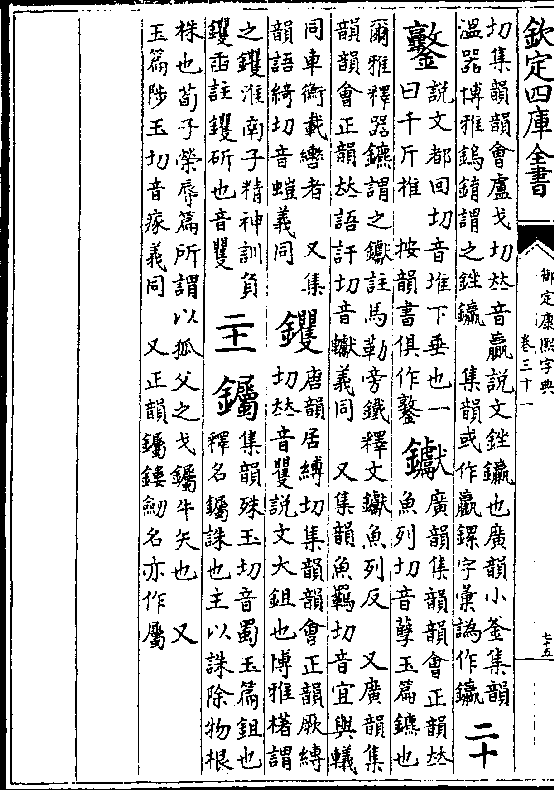 欽定四庫全書
御定康熙字典
卷三十一
七五
切集韻韻會盧戈切𠀤音驘說文銼鑹也廣韻小釜集韻
溫器博雅鎢錥謂之銼鑹 集韻或作驘鏍字彙譌作鑹 二十
鐜 說文都回切音堆下垂也一
曰千斤椎 按韻書俱作鐜
钀 廣韻集韻韻會正韻𠀤
魚列切音孽玉篇鑣也
爾雅釋器鑣謂之钀註馬勒旁鐵釋文钀魚列反 又廣韻集
韻韻會正韻𠀤語訐切音钀義同 又集韻魚羈切音宜與轙
同車衡載轡者 又集
韻語綺切音螘義同
钁 唐韻居縛切集韻韻會正韻厥縛
切𠀤音矍說文大鉏也博雅櫡謂
之钁淮南子精神訓負
钁臿註钁斫也音矍
二十一
钃 集韻殊玉切音蜀玉篇鉏也
釋名钃誅也主以誅除物根
株也荀子榮辱篇所謂以狐父之戈钃牛矢也 又
玉篇陟玉切音瘃義同 又正韻钃鏤劒名亦作屬